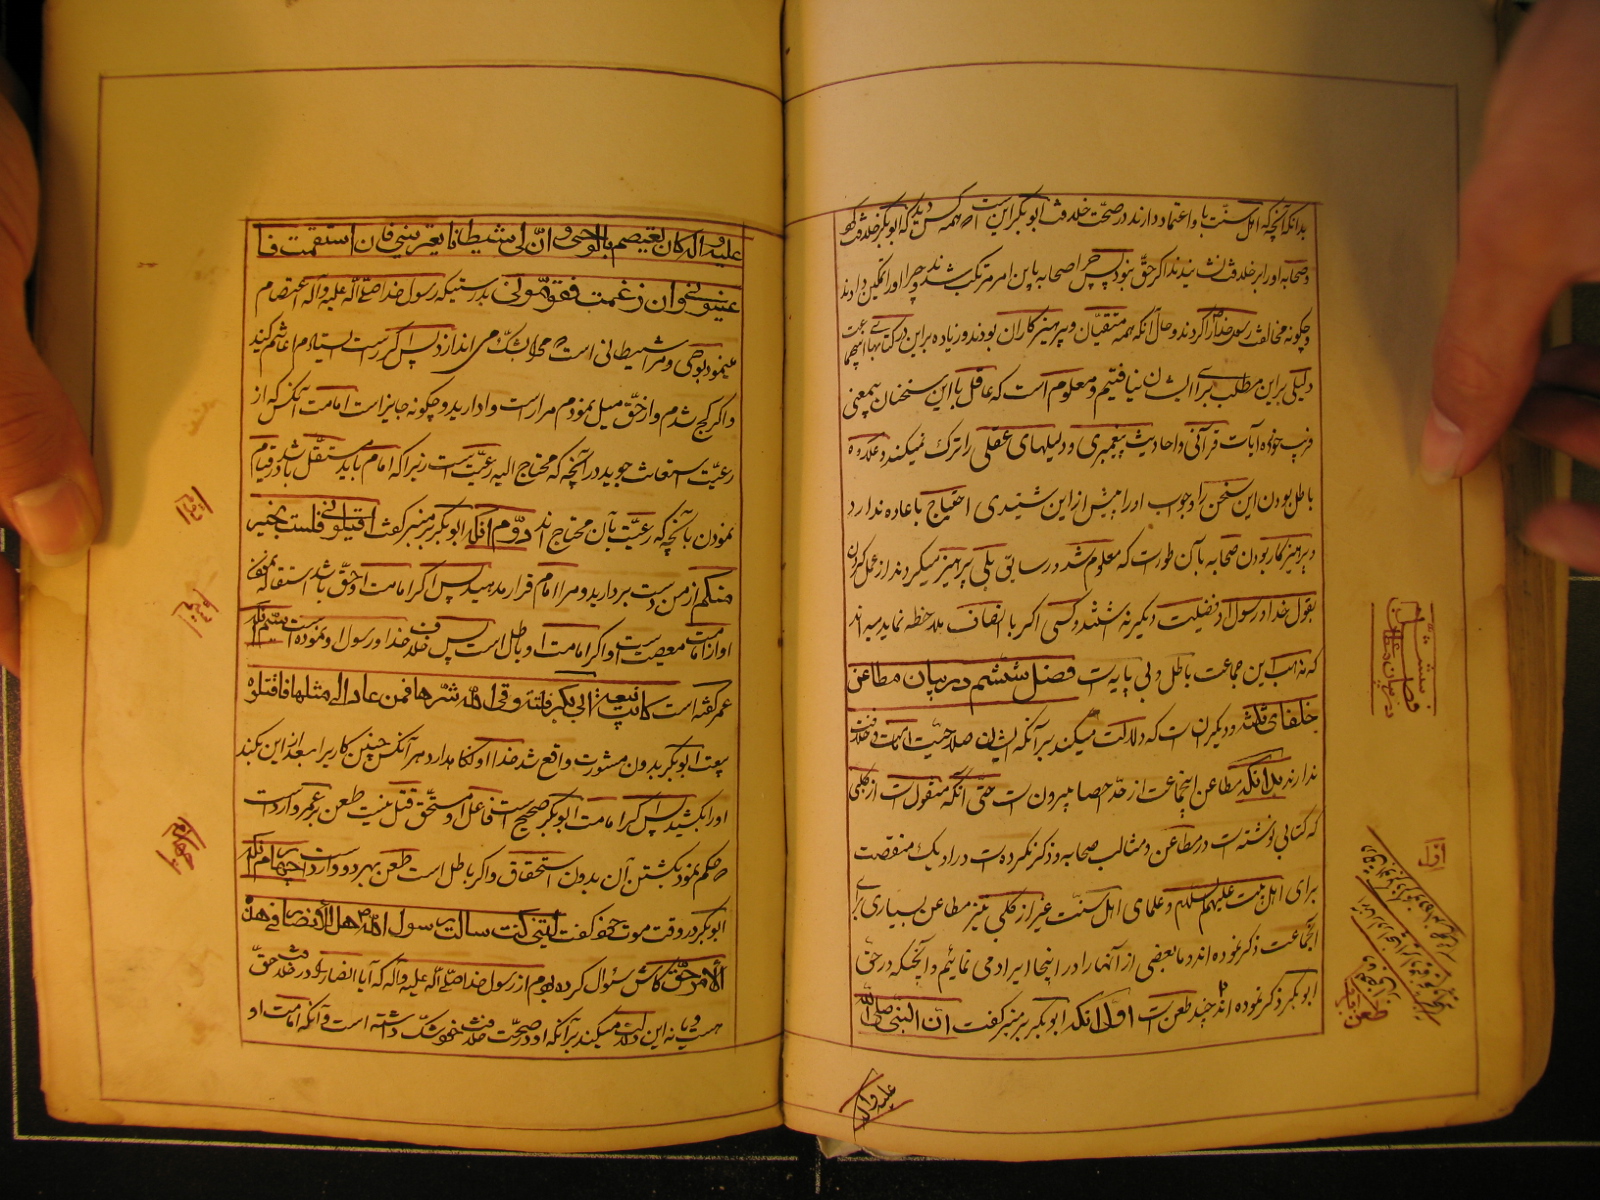 بدانکه آنچه که اهل سنت با و اعتماد دارند در صحّت خلافت ابوبکر این است که همه کس دیدند که ابوبکر خلافت کرد
و صحابه او را بر خلافت نشانیدند اگر حق نبود پس چرا صحابه باین امر مرتکب شدند و چرا او را تمکین دادند
و چگونه مخالفت رسول خدا را کردند و حال آنکه همه متقیان و پرهیزکاران بودند و زیاده بر این در کتابهای
دلیلی بر این مطلب برای ایشان نیافتیم و معلوم است که عاقل با این سخنان بیمعنی
فریب خورده آیات قرآنی و احادیث پیغمبری و دلیلهای عقلی را ترک نمیکند و علاوه
باطل بودن این سخن را و جواب او را پیش از این شنیدی احتیاج باعاده ندارد
و پرهیزکار بودن صحابه بآن طور است که معلوم شد در سابق بلی پرهیز میکردند از عمل کردن
بقول خدا و رسول او فضیلت دیگر نداشتند و کسی اگر با انصاف ملاحظه نماید میداند
که مذهب این جماعت باطل و بی پایه است فصل ششم در بیان مطاعن
خلفای ثلثه و دیگران است که دلالت میکند بر آنکه ایشان صلاحیت امامت و خلافت
ندارند بدانکه مطاعن اینجماعت از حدّ احصا بیرونست حتی آنکه منقول است از کلبی
که کتابی نوشته است در مطاعن و مثالب صحابه و ذکر نکرده است در او یک منقصت
برای اهل بیت علیهم السلام و علمای اهل سنّت غیر از کلبی نیز مطاعن بسیاری برای
اینجماعت ذکر نموده اند ما بعضی از آنها را در اینجا ایراد می نمائیم و آنچنکه در حق
ابوبکر ذکر نموده اند چند طعن است اوّل آنکه ابوبکر بر منبر گفت انّ النبی صلی اللّه
علیه و آله
فصل ششم
در بیان مطاعن
اوّل
طعن
علیه و آله کان یعتصم بالوحی و انّ لی شیطانا یعترینی فان استقمت فا
عینونی و ان زغمت فقوّمونی بدرستیکه رسول خدا صلی اللّه علیه و آله اعتصام
مینمود بوحی و مرا شیطانی است که مرا بشک می اندازد پس اگر راست ایستادم اعانتم کنید
و اگر کج شدم و از حق میل نمودم مرا راست وادارید و چگونه جایز است امامت آنکس که از
رعیّت استعانت جوید در آنچه که محتاج الیه رعیّت است زیرا که امام باید مستقل باشد در قیام
نمودن بآنچه که رعیّت بآن محتاج اند دوّم آنکه ابوبکر بر منبر گفت اقیلونی فلست بخیر
منکم از من دست بردارید و مرا امام قرار مدهید پس اگر امامت او حقّ باشد استقاله نمودن
او از امامت معصیت است و اگر امامت او باطل است پس خلاف خدا و رسول او نموده است سیّم آنکه
عمر گفته است کانت بیعة ابی بکر فلتة وقی اللّه شرّها فمن عاد الی مثلها فاقتلوه
بیعت ابوبکر بدون مشورت واقع شد خدا او را نگاهدارد هر آنکس چنین کار را بعد از این کند
او را بکشید پس اگر امامت ابوبکر صحیح است فاعل او مستحقّ قتل نیست طعن بر عمر وارد است
حکم نمود بکشتن آن بدون استحقاق و اگر باطل است طعن بهر دو وارد است چهارم آنکه
ابوبکر در وقت موت خود گفت لیتنی کنت سالت رسول اللّه هل للانصار فی هذا
الامر حقّ کاش سئوال کرده بودم از رسول خدا صلی اللّه علیه و آله که آیا انصار را در خلافت حقّ
هست یا نه این دلالت میکند بر آنکه او در صحّت خلافت خود شک داشته است و آنکه امامت او
ثانی
چهارم